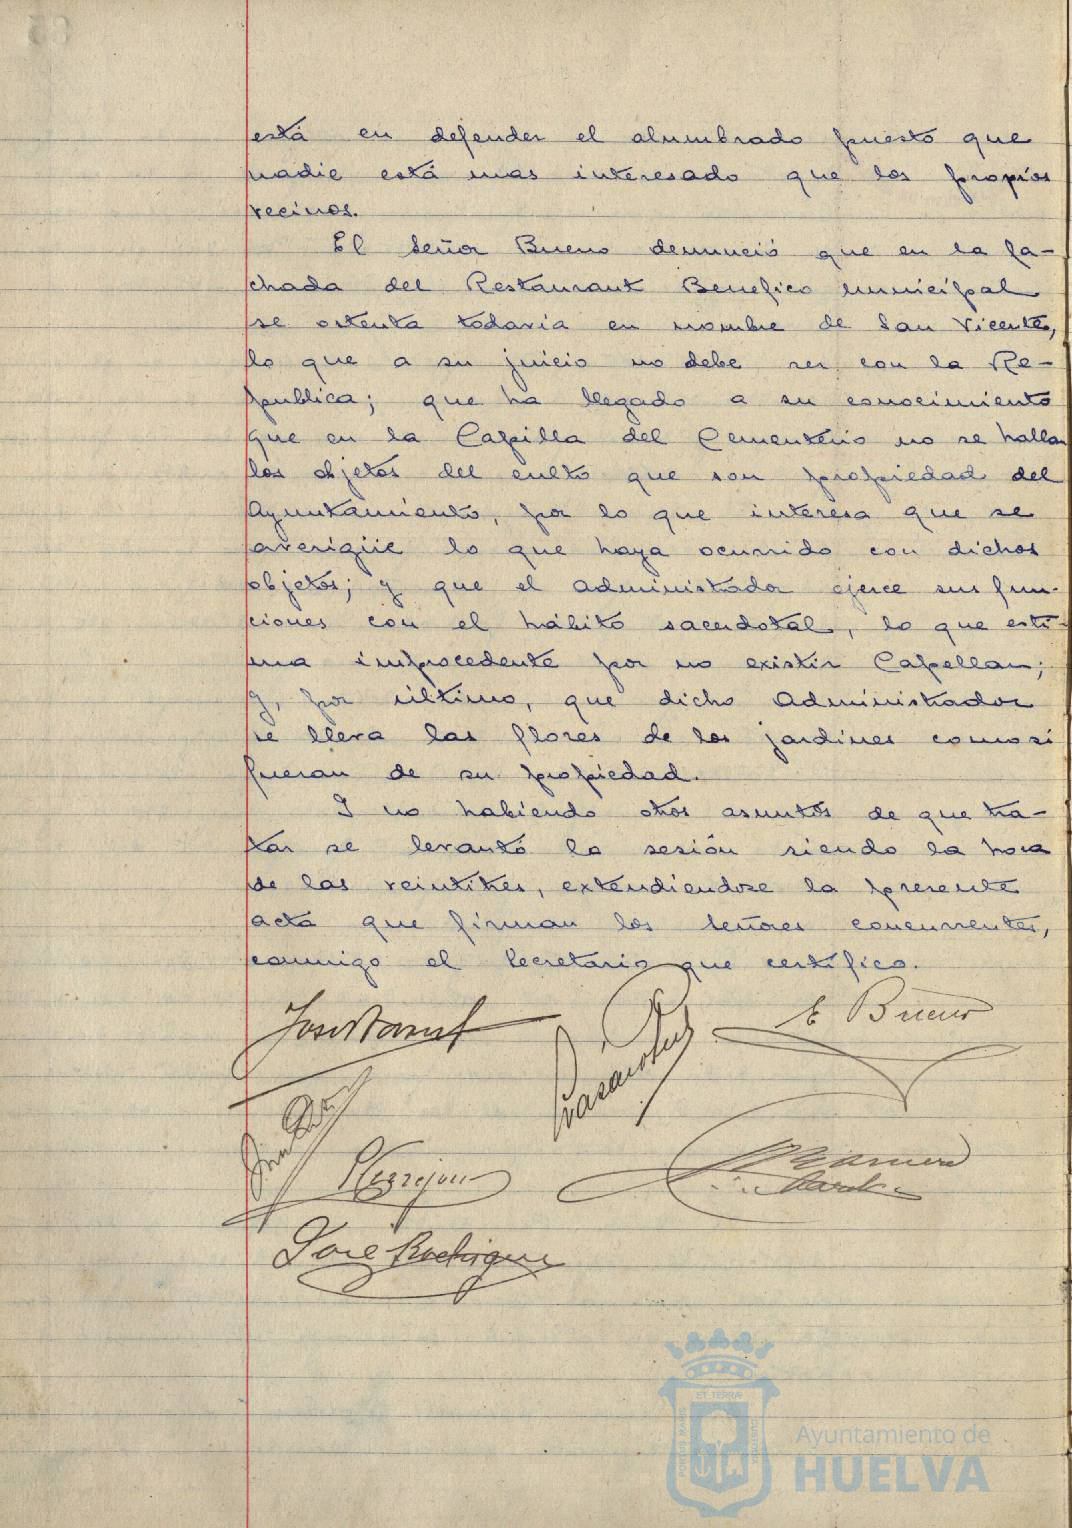 está en defender el alumbrado puesto que
nadie está mas interesado que los propios
vecinos.
El Señor Bueno denunció que en la fa-
chada del Restaurant Benefico municipal
se ostenta todavia en nombre de San Vicente,
lo que a su juicio no debe ser con la Re-
publica; que ha llegado a su conocimiento
que en la Capilla del Cementerio no se hallan
los objetos del culto que son propiedad del
Ayuntamiento, por lo que interesa que se
averigüe lo que haya ocurrido con dichos
objetos; y que el administrador ejerce sus fun-
ciones con el hábito sacerdotal, lo que esti-
ma improcedente por no existir Capellan;
y, por último, que dicho Administrador
se lleva las flores de los jardines como si
fueran de su propiedad.
Y no habiendo otros asuntos de que tra-
tar se levantó la sesión siendo la hora
de las veintitres, extendiendose la presente
acta que firman los señores concurrentes,
conmigo el Secretario que certifico.
E Bueno
José Rodriguez
ET TERRÆ
PORTUS MARIS
CUSTODIA
Ayuntamiento de
HUELVA